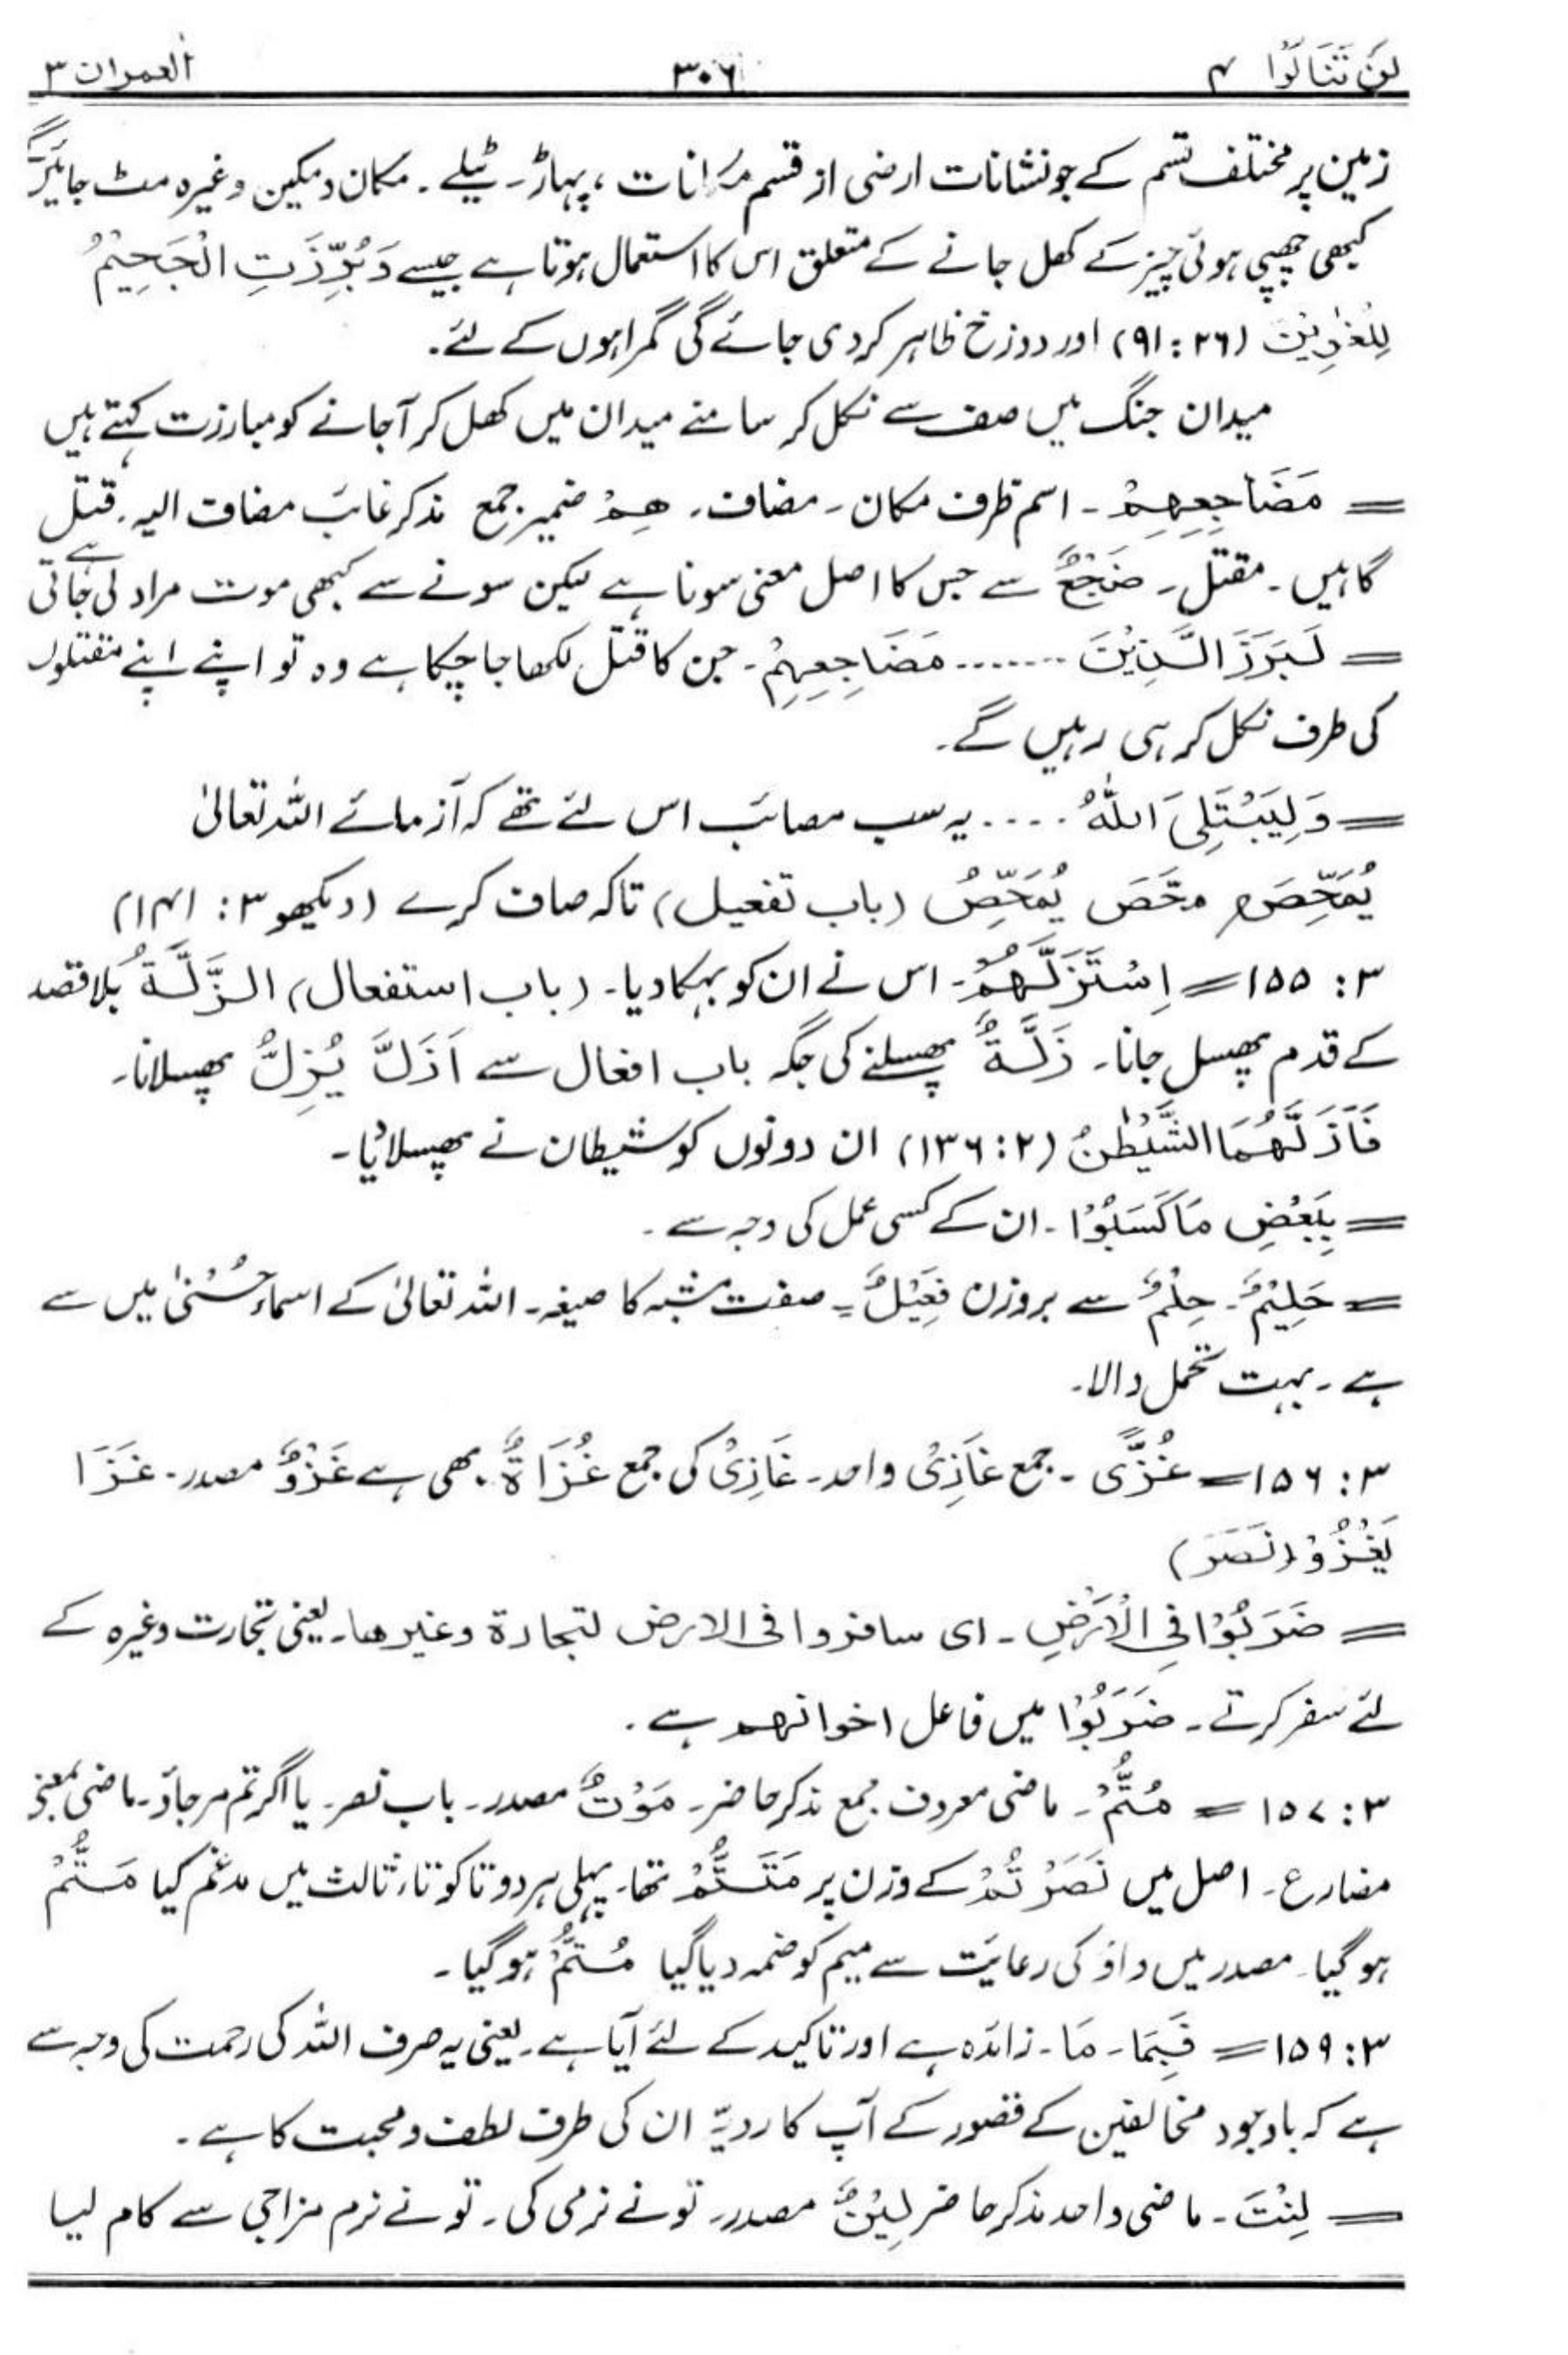 لَنْ تَنَالُوْا ۴ ۳۰۶ اٰلعمران ۳
زمین پر مختلف قسم کے جو نشانات ارضی از قسم مکانات ، پہاڑ۔ ٹیلے ۔ مکان و مکین وغیرہ مٹ جائیں گے
کبھی چھپی ہوئی چیز کے کھل جانے کے متعلق اس کا استعمال ہوتا ہے جیسے وَبُرِّزَتِ الْجَحِيْمُ
لِلْغٰوِيْنَ (۲۶: ۹۱) اور دوزخ ظاہر کردی جائے گی گمراہوں کے لئے۔
میدان جنگ میں صف سے نکل کر سامنے میدان میں کھل کر آجانے کو مبارزت کہتے ہیں
= مَضَاجِعِهِمْ ۔ اسم ظرف مکان ۔ مضاف ۔ هِمْ ضمیر جمع مذکر غائب مضاف الیہ ۔ قتل
گاہیں ۔ مقتل ۔ ضَجْعٌ سے جس کا اصل معنی سونا ہے لیکن سونے سے کبھی موت مراد لی جاتی ہے
= لَبَرَزَ الَّذِيْنَ ....... مَضَاجِعِهِمْ ۔ جن کا قتل لکھا جا چکا ہے وہ تو اپنے اپنے مقتلوں
کی طرف نکل کر ہی رہیں گے ۔
= وَلِيَبْتَلِىَ اللّٰهُ .... یہ سب مصائب اس لئے تھے کہ آزمائے اللہ تعالیٰ
يُمَحِّصَ مَحَّصَ يُمَحِّصُ (باب تفعیل) تاکہ صاف کرے (دیکھو ۳: ۱۴۱)
۳: ۱۵۵ = اِسْتَزَلَّهُمُ ۔ اس نے ان کو بہکا دیا ۔ (باب استفعال) الزَّلَّةُ بلا قصد
کے قدم پھسل جانا ۔ زَلَّةٌ پھسلنے کی جگہ باب افعال سے اَزَلَّ يُزِلُّ پھسلانا ۔
فَاَزَلَّهُمَا الشَّيْطٰنُ (۲: ۱۳۶) ان دونوں کو شیطان نے پھسلایا ۔
= بِبَعْضِ مَا كَسَبُوْا ۔ ان کے کسی عمل کی وجہ سے ۔
= حَلِيْمٌ ۔ حِلْمٌ سے بروزن فَعِيْلٌ = صفت مشبہ کا صیغہ ۔ اللہ تعالیٰ کے اسماء حُسْنٰی میں سے
ہے ۔ بہت تحمل والا ۔
۳: ۱۵۶ = غُزًّى ۔ جمع غَازِىْ واحد ۔ غَازِىْ کی جمع غُزَاةٌ ۔ بھی ہے غَزْوٌ مصدر ۔ غَزَا
يَغْزُوْ (نَصَرَ)
= ضَرَبُوْا فِى الْاَرْضِ ۔ اى سافروا فى الارض لتجارة وغيرها ۔ یعنی تجارت وغیرہ کے
لئے سفر کرتے ۔ ضَرَبُوْا میں فاعل اخوانهم ہے ۔
۳: ۱۵۷ = مُتُّمْ ۔ ماضی معروف جمع مذکر حاضر ۔ مَوْتٌ مصدر ۔ باب نصر ۔ یا اگر تم مر جاؤ ۔ ماضی بمعنی
مضارع ۔ اصل میں نَصَرْتُمْ کے وزن پر مَتَتُّمْ تھا ۔ پہلی ہر دو تا کو تاء ثالث میں مدغم کیا مَتُّمْ
ہوگیا ۔ مصدر میں واؤ کی رعایت سے میم کو ضمہ دیا گیا مُتُّمْ ہوگیا ۔
۳: ۱۵۹ = فَبِمَا ۔ مَا ۔ زائدہ ہے اور تاکید کے لئے آیا ہے ۔ یعنی یہ صرف اللہ کی رحمت کی وجہ سے
ہے کہ باوجود مخالفین کے قصور کے آپ کا رویہّ ان کی طرف لطف و محبت کا ہے ۔
= لِنْتَ ۔ ماضی واحد مذکر حاضر لِيْنٌ مصدر ۔ تو نے نرمی کی ۔ تو نے نرم مزاجی سے کام لیا